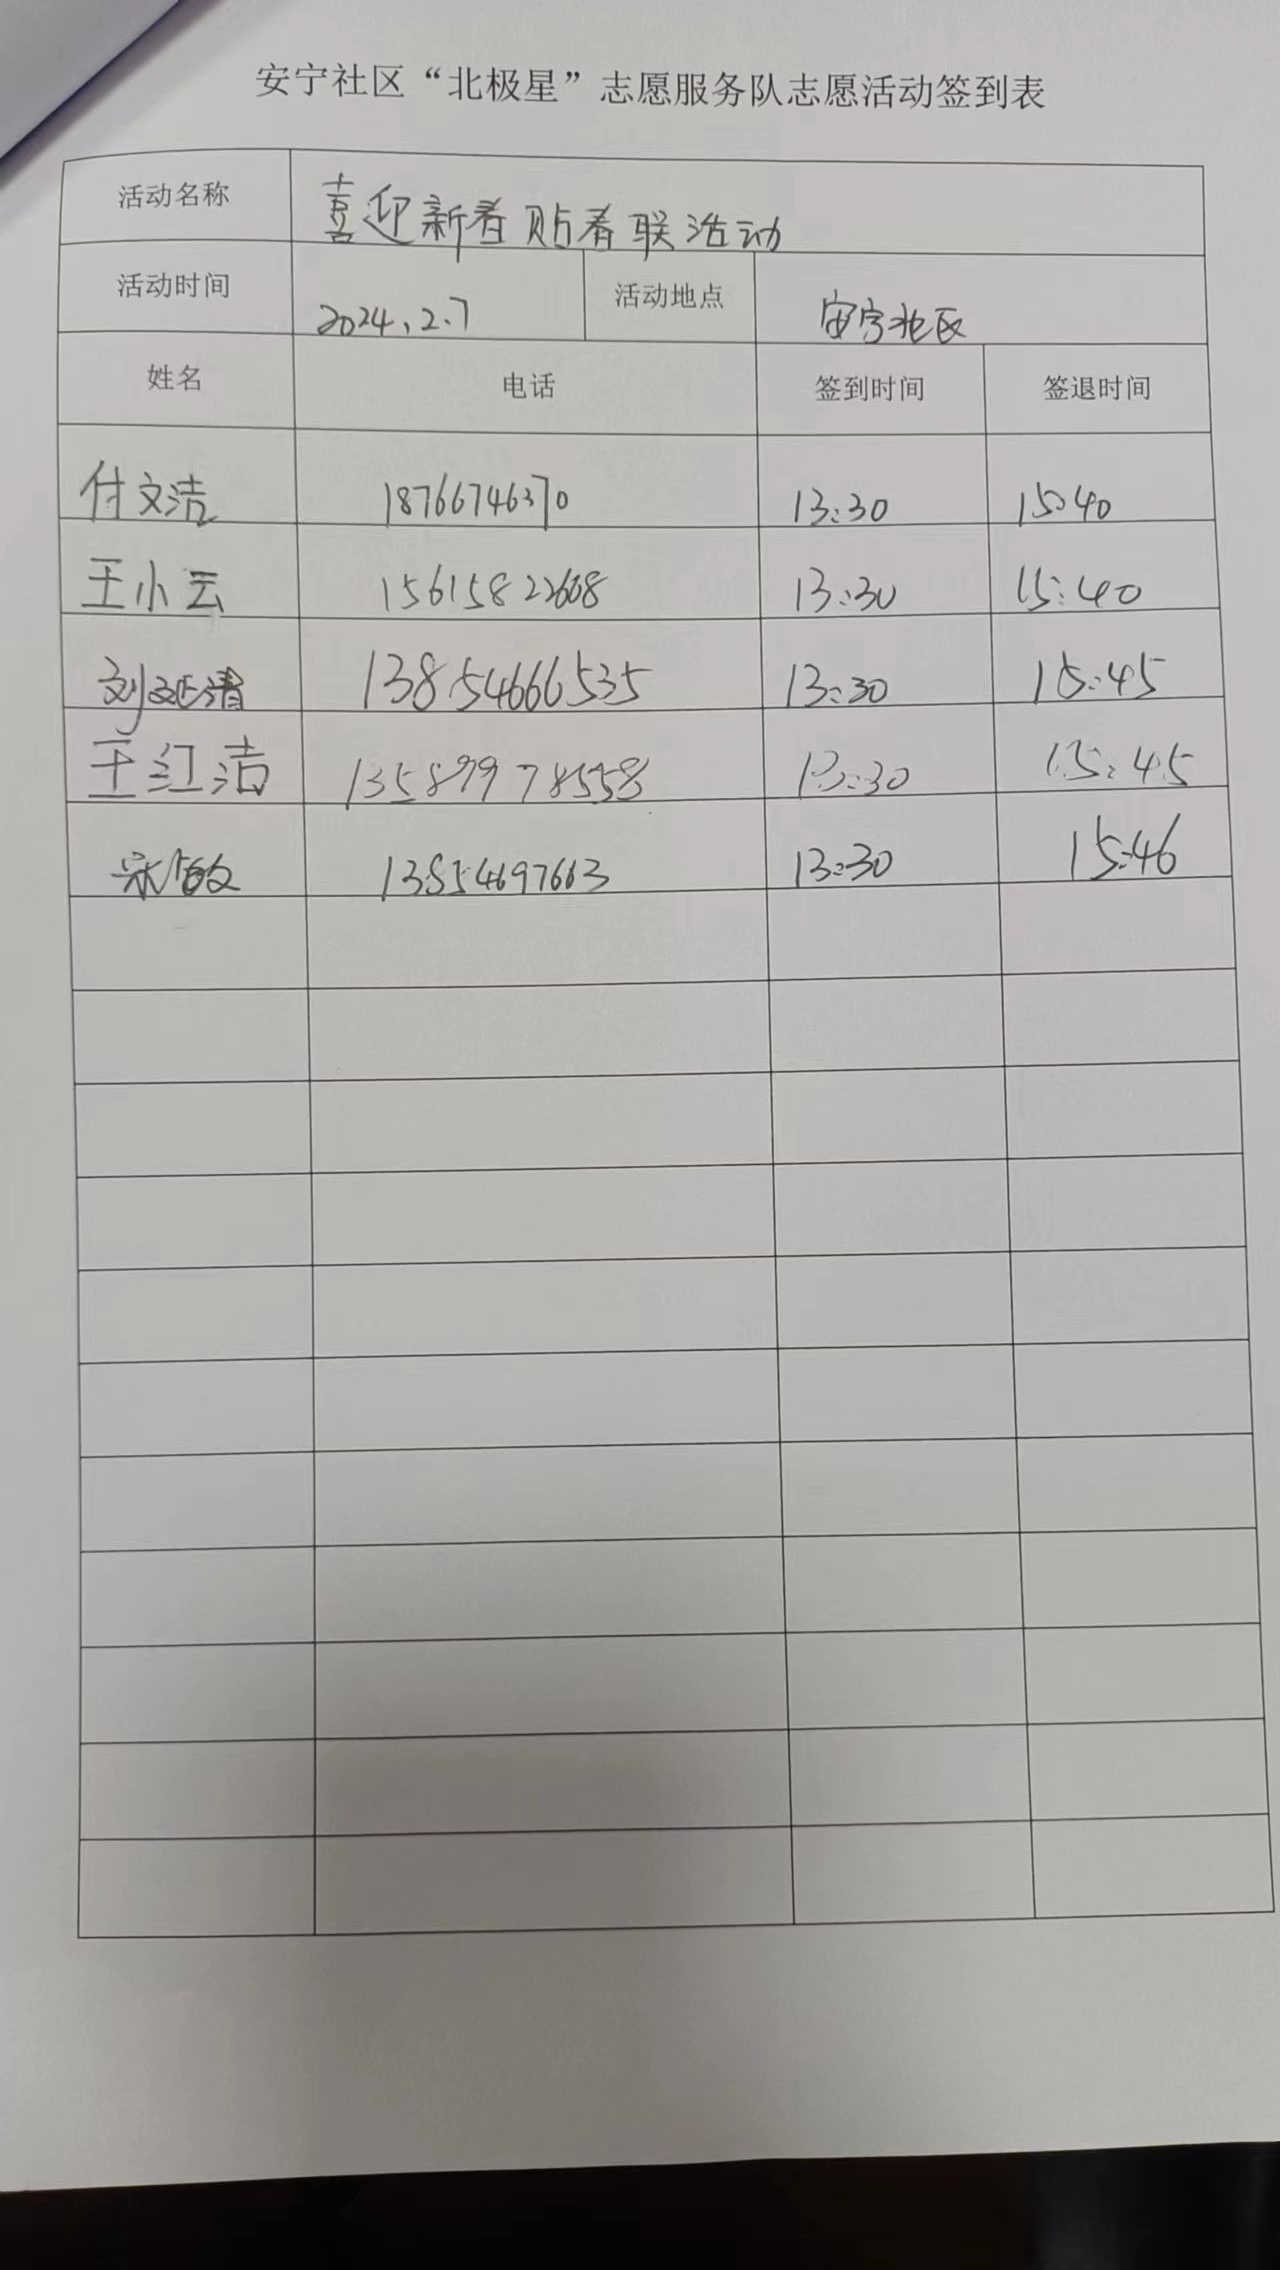 安宁社区“北极星”志愿服务队志愿活动签到表
活动名称 喜迎新春贴春联活动
活动时间 2024.2.7 活动地点 安宁北区
姓名 电话 签到时间 签退时间
付文洁 18766746370 13:30 15:40
王小云 15615822608 13:30 15:40
刘延清 13854666535 13:30 15:45
王红洁 13589978558 13:30 15:45
宋敏 13854697663 13:30 15:46